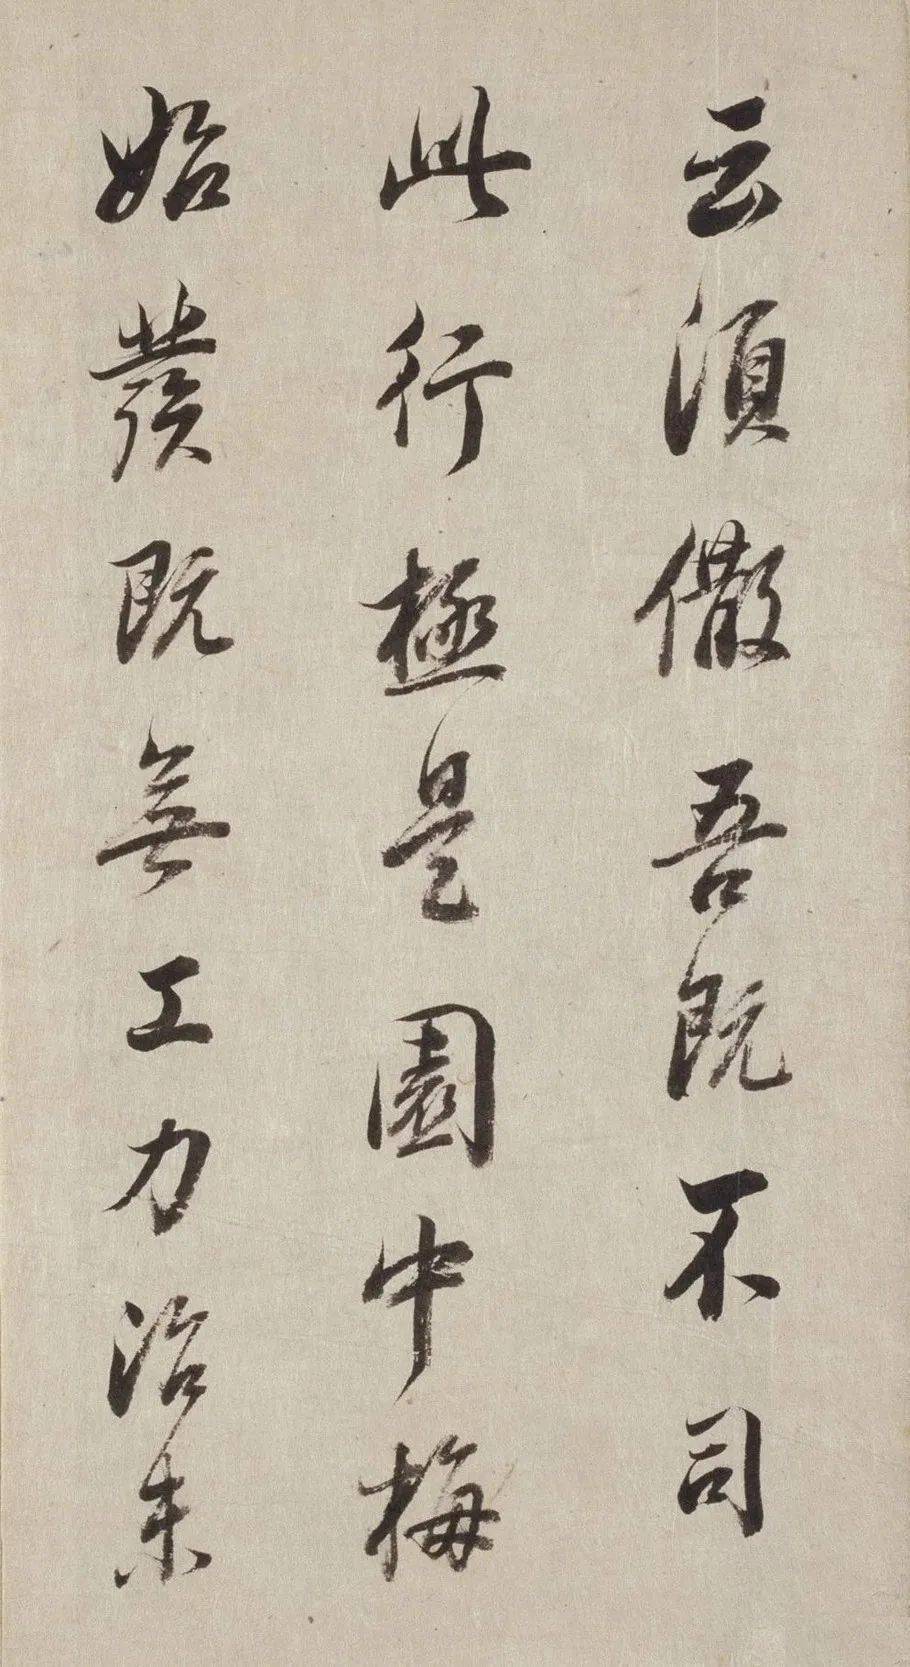 云須儆吾既不司
此行極是園中梅
始發既無工力治未